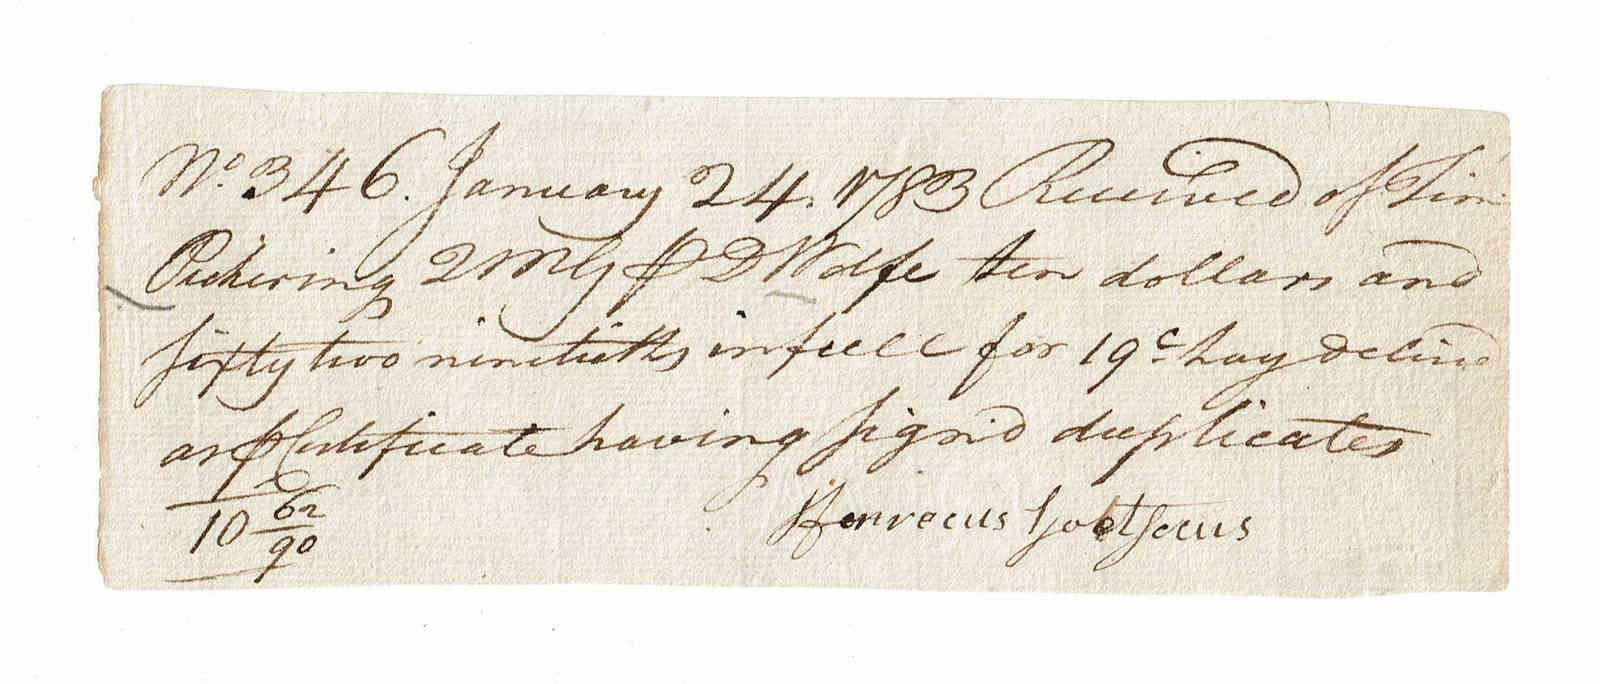 No. 346. January 24. 1783 Received of Tim
Pickering 2MG ⅌ D Wolfe ten dollars and
sixty two ninetieths in full for 19c hay deliv'd
as ⅌ Certificate having sign'd duplicates
10 62/90
Henrecus